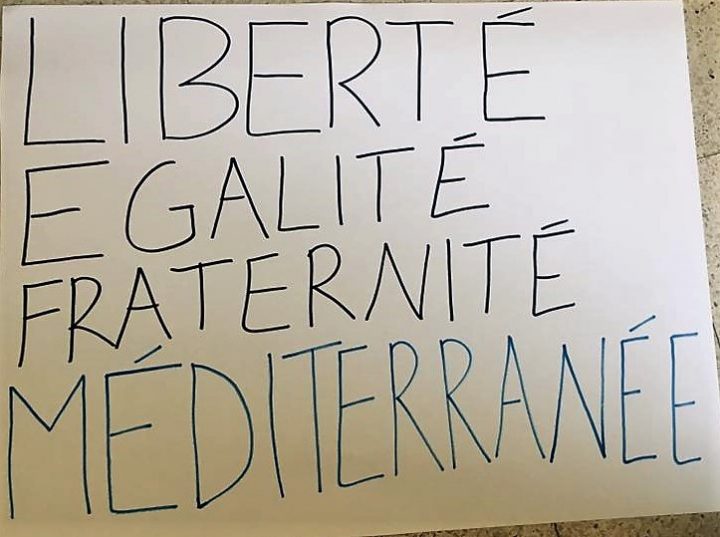 LIBERTÉ
EGALITÉ
FRATERNITÉ
MÉDITERRANÉE